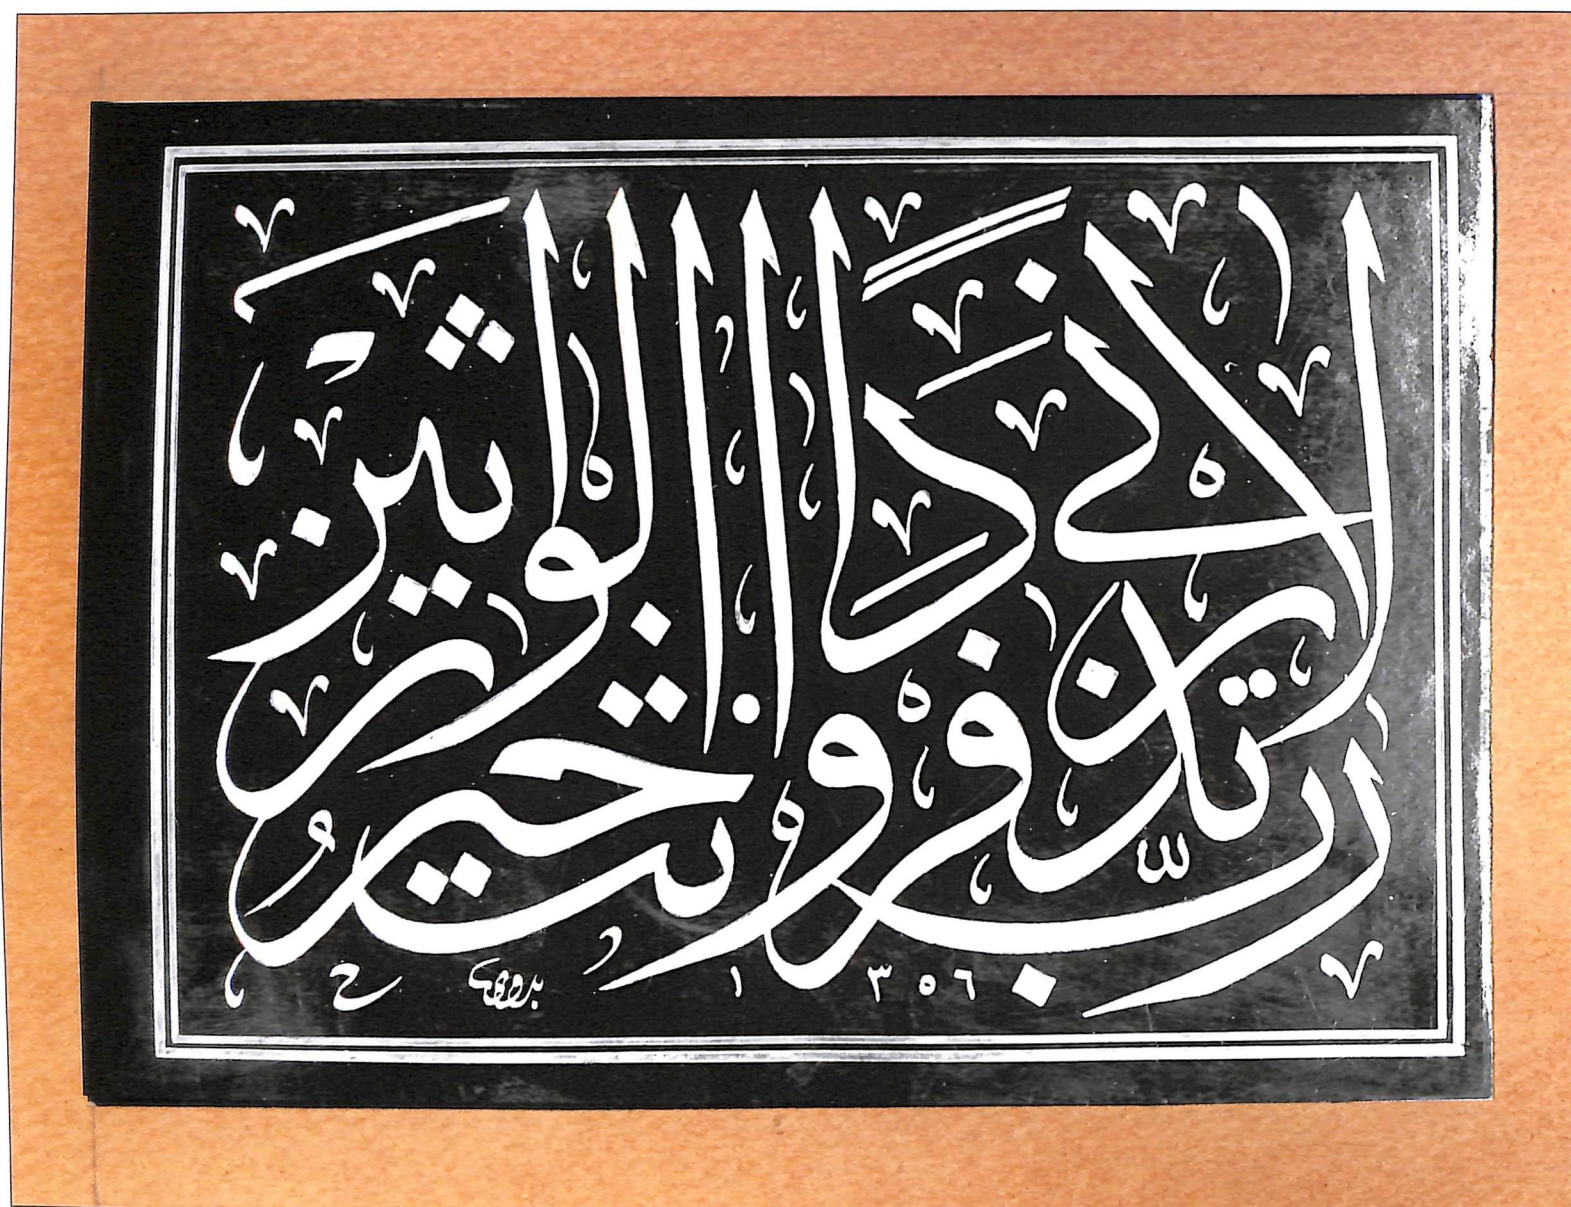 رب لا تذرني فردا وأنت خير الوارثين
بدوي
١٣٥٦